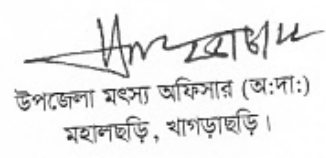 উপজেলা মৎস্য অফিসার (অ:দা:)
মহালছড়ি, খাগড়াছড়ি।